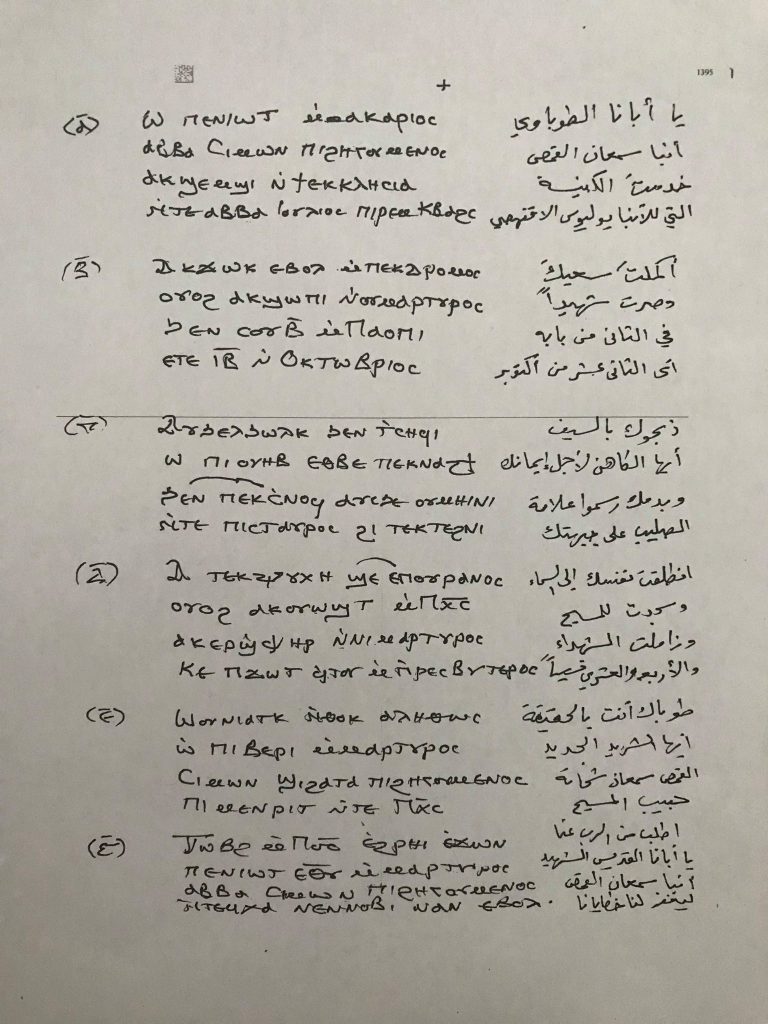 1395 ٦
+
(ⲁ̄) Ⲱ ⲠⲈⲚⲒⲰⲦ ⲙ̀ⲙⲁⲕⲁⲣⲓⲟⲥ يا أبانا الطوباوي
ⲁⲃⲃⲁ Ⲥⲓⲙⲱⲛ ⲡⲓϩⲏⲅⲟⲩⲙⲉⲛⲟⲥ أنبا سمعان القمص
ⲁⲕϣⲉⲙϣⲓ ⲛ̀ϯⲉⲕⲕⲗⲏⲥⲓⲁ خدمتَ الكنيسة
ⲛ̀ⲧⲉ ⲁⲃⲃⲁ Ⲓⲟⲩⲗⲓⲟⲥ ⲡⲓⲣⲉⲙⲕⲃⲁϩⲥ التي للأنبا يوليوس الاقفهصي
(ⲃ̄) Ⲁⲕϫⲱⲕ ⲉⲃⲟⲗ ⲙ̀ⲡⲉⲕⲇⲣⲟⲙⲟⲥ أكملتَ سعيكَ
ⲟⲩⲟϩ ⲁⲕϣⲱⲡⲓ ⲛ̀ⲟⲩⲙⲁⲣⲧⲩⲣⲟⲥ وصرت شهيداً
ϧⲉⲛ ⲥⲟⲩⲃ̄ ⲙ̀ⲡⲁⲟⲡⲓ في الثانى من بابه
ⲉⲧⲉ ⲓ̄ⲃ̄ ⲛ̀ Ⲟⲕⲧⲱⲃⲣⲓⲟⲥ اى الثانى عشر من أكتوبر
(ⲅ̄) Ⲁⲩϧⲉⲗϧⲱⲗⲕ ϧⲉⲛ ⲧ̀ⲥⲏϥⲓ ذبحوك بالسيف
ⲱ ⲡⲓⲟⲩⲏⲃ ⲉⲑⲃⲉ ⲡⲉⲕⲛⲁϩϯ أيها الكاهن لأجل إيمانك
ϧⲉⲛ ⲡⲉⲕⲥ̀ⲛⲟϥ ⲟⲩⲙⲏⲓⲛⲓ وبدمك رسموا علامة
ⲛ̀ⲧⲉ ⲡⲓⲥⲧⲁⲩⲣⲟⲥ ϩⲓ ⲧⲉⲕⲧⲉϩⲛⲓ الصليب على جبهتك
(ⲇ̄) Ⲁ ⲧⲉⲕⲯⲩⲭⲏ ϣⲉ ⲉⲡⲟⲩⲣⲁⲛⲟⲥ انطلقت نفسك إلى السماء
ⲟⲩⲟϩ ⲁⲕⲟⲩⲱϣⲧ ⲙ̀Ⲡⲭ̄ⲥ وسجدت للمسيح
ⲁⲕⲉⲣϣ̀ⲫⲏⲣ ⲛ̀ⲛⲓⲙⲁⲣⲧⲩⲣⲟⲥ وزاملت الشهداء
ⲕⲉ ⲡϫⲱⲧ ϥ̀ⲧⲟⲩ ⲙ̀ⲡ̀ⲣⲉⲥⲃⲩⲧⲉⲣⲟⲥ والأربعه والعشرين قسيساً
(ⲉ̄) Ⲱⲟⲩⲛⲓⲁⲧⲕ ⲛ̀ⲑⲟⲕ ⲁⲗⲏⲑⲱⲥ طوباك أنت بالحقيقة
ⲱ̀ ⲡⲓⲃⲉⲣⲓ ⲙ̀ⲙⲁⲣⲧⲩⲣⲟⲥ ايها الشهيد الجديد
Ⲥⲓⲙⲱⲛ ϣⲓϩⲁⲧⲁ ⲡⲓϩⲏⲅⲟⲩⲙⲉⲛⲟⲥ القمص سمعان شحاتة
ⲡⲓⲙⲉⲛⲣⲓⲧ ⲛ̀ⲧⲉ Ⲡⲭ̄ⲥ حبيب المسيح
Ⲧⲱⲃϩ ⲙ̀Ⲡⲟ̄ⲥ̄ ⲉ̀ϩⲣⲏⲓ ⲉ̀ϫⲱⲛ اطلب من الرب عنا
ⲡⲉⲛⲓⲱⲧ ⲉⲑ̄ⲩ̄ ⲙ̀ⲙⲁⲣⲧⲩⲣⲟⲥ يا أبانا القديس الشهيد
ⲁⲃⲃⲁ Ⲥⲓⲙⲱⲛ ⲡⲓϩⲏⲅⲟⲩⲙⲉⲛⲟⲥ أنبا سمعان القمص
ⲛ̀ⲧⲉϥⲭⲁ ⲛⲉⲛⲛⲟⲃⲓ ⲛⲁⲛ ⲉⲃⲟⲗ. ليغفر لنا خطايانا